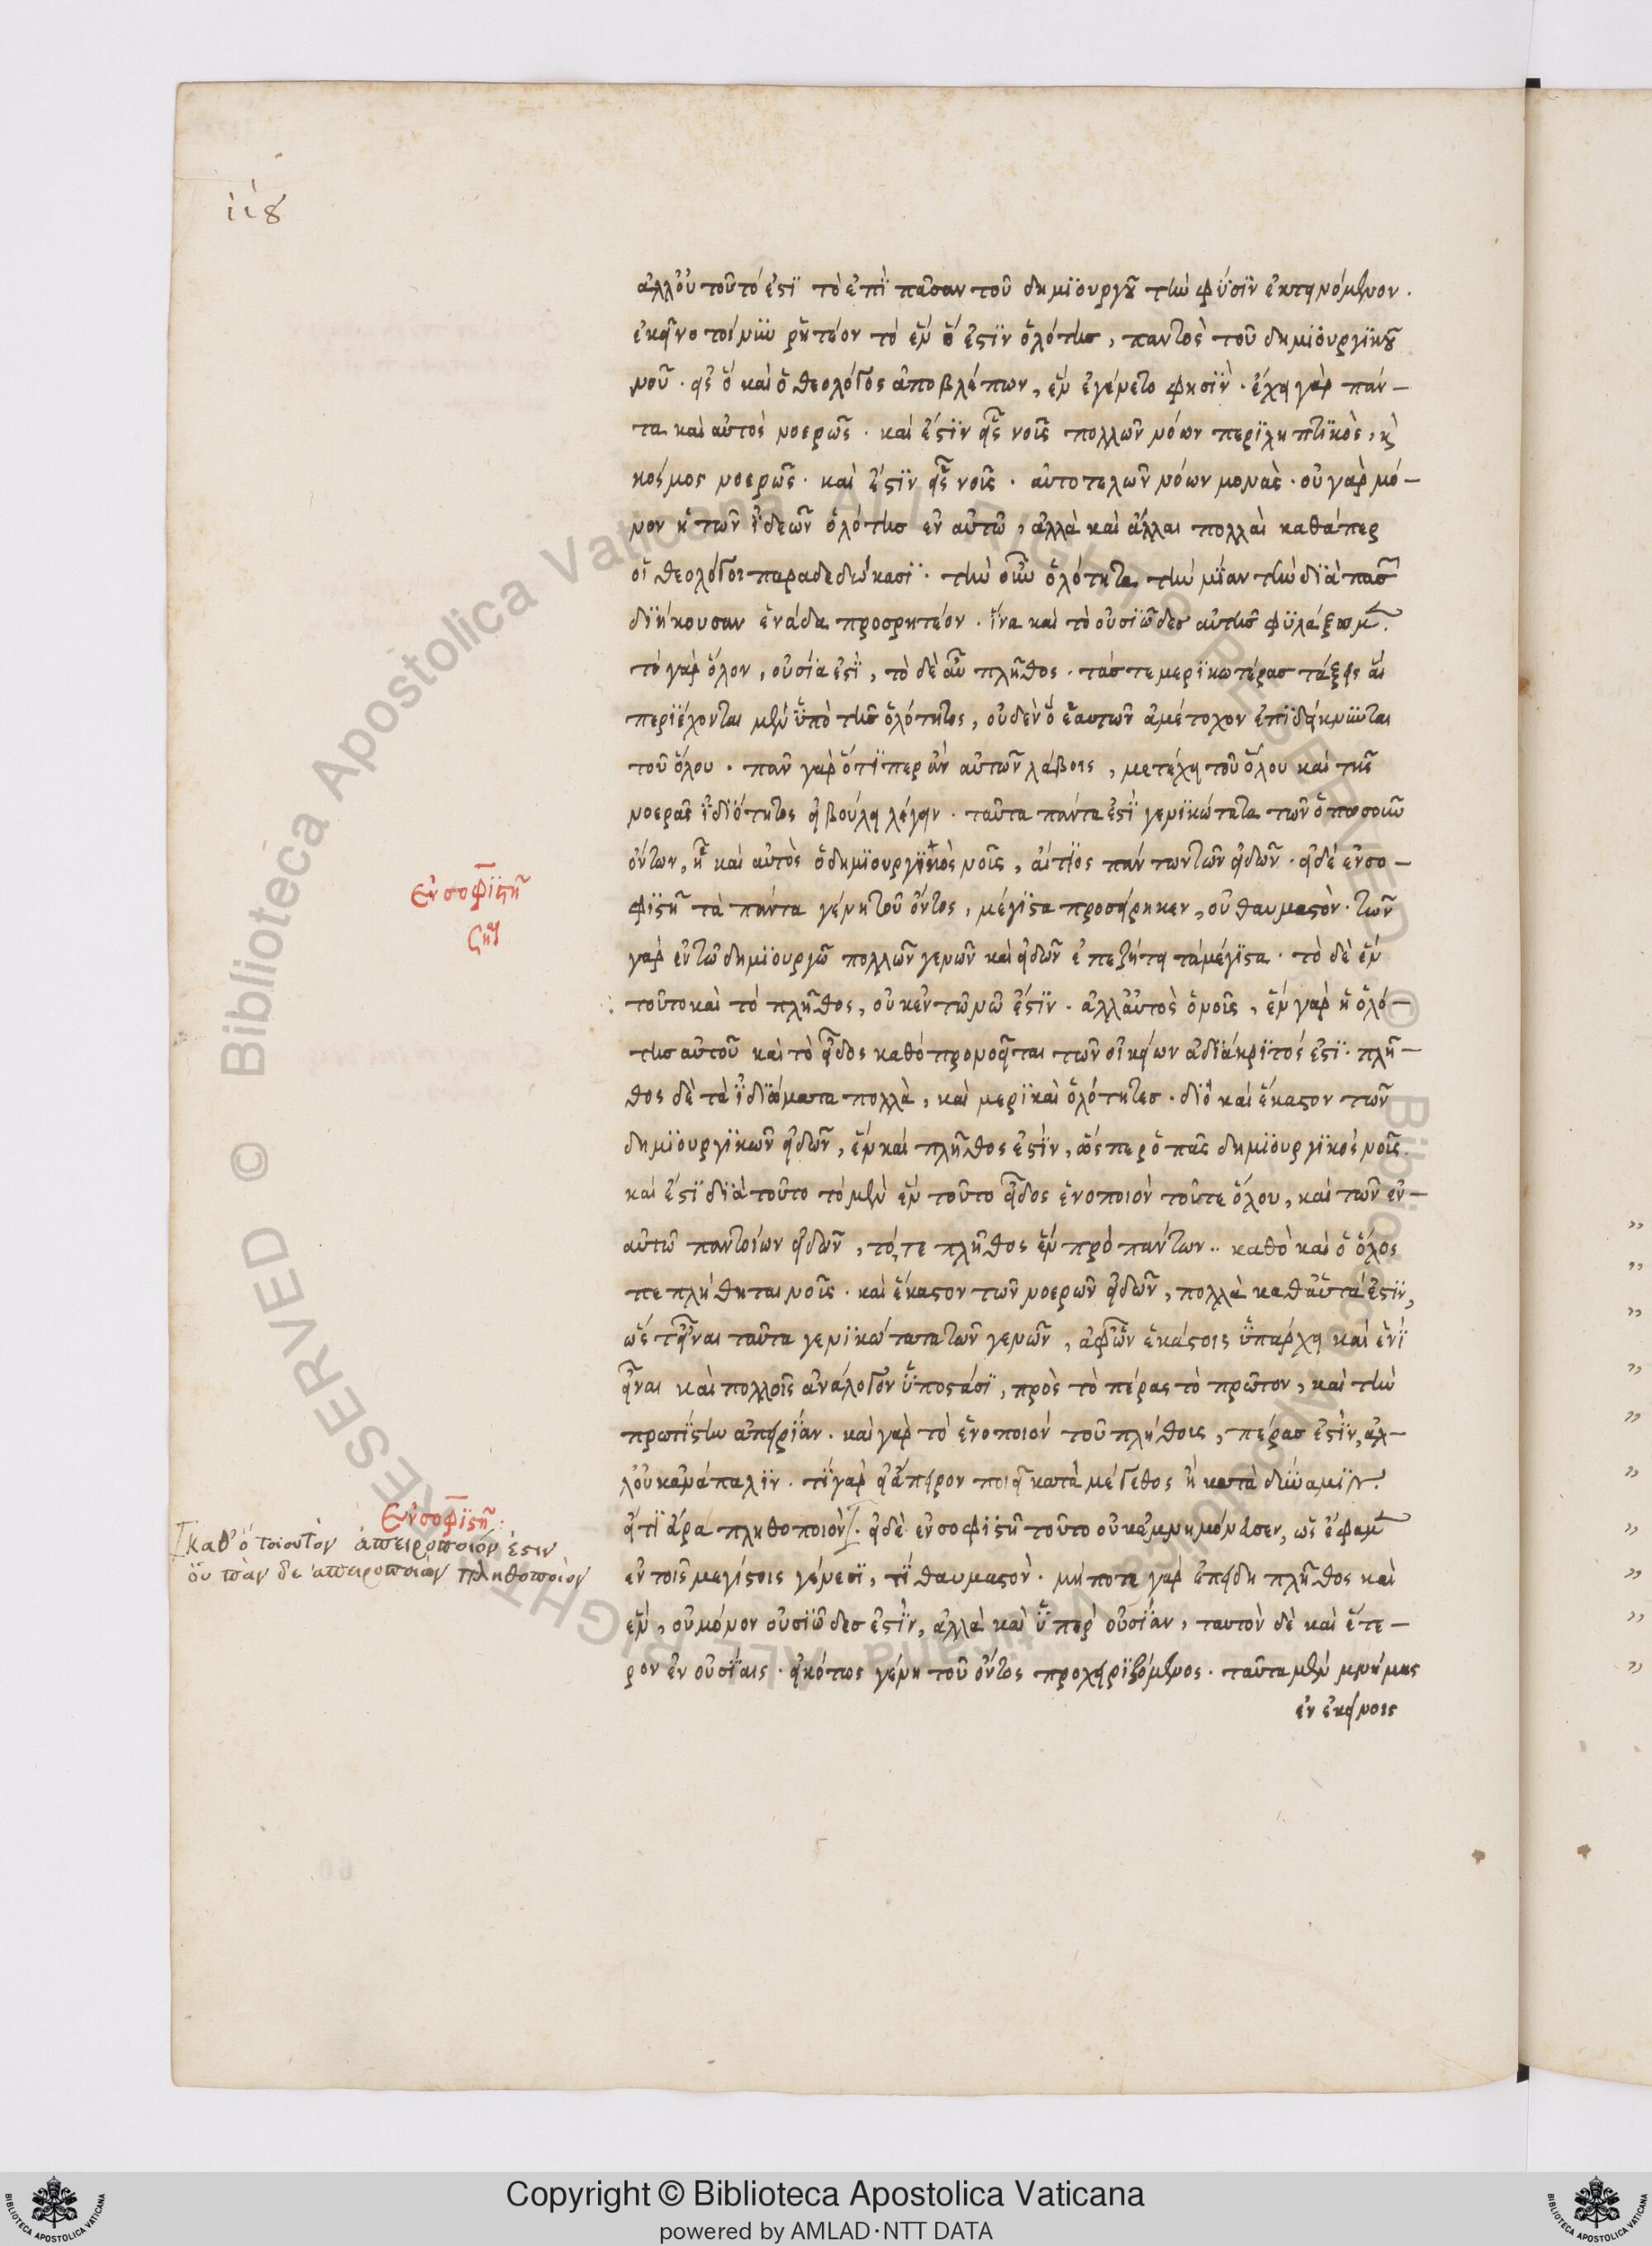 118
ἀλλ' οὐ τοῦτό ἐστι τὸ ἐπὶ πᾶσαν τοῦ δημιουργοῦ τὴν φύσιν ἐκτεινόμενον.
ἐκεῖνο τοίνυν ῥητέον τὸ ἓν ὅ ἐστιν ὁλότης, παντὸς τοῦ δημιουργικοῦ
νοῦ. εἰς ὃ καὶ ὁ θεολόγος ἀποβλέπων, ἓν ἐγένετο φησὶν. ἔχει γὰρ πάν-
τα καὶ αὐτὸς νοερῶς. καὶ ἔστιν εἷς νοῦς πολλῶν νόων περιληπτικὸς, κ
κόσμος νοερῶς. καὶ ἔστιν εἷς νοῦς. αὐτοτελῶν νόων μονὰς. οὐ γὰρ μό-
νον ἡ τῶν ἰδεῶν ὁλότης ἐν αὐτῷ, ἀλλὰ καὶ ἄλλαι πολλαὶ καθάπερ
οἱ θεολόγοι παραδεδώκασι. τὴν οὖν ὁλότητα τὴν μίαν τὴν διὰ πασῶν
διήκουσαν ἑνάδα προσρητέον. ἵνα καὶ τὸ οὐσιῶδες αὐτῆς φυλάξωμεν.
τὸ γὰρ ὅλον, οὐσία ἐστὶ, τὸ δὲ αὖ πλῆθος. τάς τε μερικωτέρας τάξεις αἳ
περιέχονται μὲν ὑπὸ τῆς ὁλότητος, οὐδὲν ὃ ἑαυτῶν ἀμέτοχον ἐπιδείκνυνται
τοῦ ὅλου. πᾶν γὰρ ὅτι περ ἂν αὐτῶν λάβοις, μετέχει τοῦ ὅλου καὶ τῆς
νοερᾶς ἰδιότητος εἰ βούλει λέγειν. ταῦτα πάντα ἐστὶ γενικώτατα τῶν ὁπωσοῦν
ὄντων, ᾗ καὶ αὐτὸς ὁ δημιουργικὸς νοῦς, αἴτιος πάντων τῶν εἰδῶν. εἰ δὲ ἐν σο-
φιστῇ τὰ πάντα γένη τοῦ ὄντος, μέγιστα προσείρηκεν, οὐ θαυμαστὸν. τῶν
γὰρ ἐν τῷ δημιουργῷ πολλῶν γενῶν καὶ εἰδῶν ἐπεζήτει τὰ μέγιστα. τὸ δὲ ἓν
τοῦτο καὶ τὸ πλῆθος, οὐκ ἐν τῷ νῷ ἐστιν. ἀλλ' αὐτὸς ὁ νοῦς, ἓν γὰρ ἡ ὁλό-
της αὐτοῦ καὶ τὸ εἶδος καθὸ προνοεῖται τῶν οἰκείων ἀδιάκριτός ἐστι. πλῆ-
θος δὲ τὰ ἰδιώματα πολλὰ, καὶ μερικαὶ ὁλότητες. διὸ καὶ ἕκαστον τῶν
δημιουργικῶν εἰδῶν, ἓν καὶ πλῆθος ἐστὶν, ὥσπερ ὁ πᾶς δημιουργικὸς νοῦς.
καὶ ἔστι διὰ τοῦτο τὸ μὲν ἓν τοῦτο εἶδος ἑνοποιὸν τοῦ τε ὅλου, καὶ τῶν ἐν-
αὐτῷ παντοίων εἰδῶν, τό, τε πλῆθος ἓν πρὸ πάντων. καθὸ καὶ ὁ ὅλος
πεπλήθηται νοῦς. καὶ ἕκαστον τῶν νοερῶν εἰδῶν, πολλὰ καθ' αὑτά ἐστιν,
ὥς τ' εἶναι ταῦτα γενικώτατα τῶν γενῶν, ἀφ' ὧν ἑκάστοις ὑπάρχει καὶ ἑνὶ
εἶναι καὶ πολλοῖς ἀνάλογον ὑποστάσι, πρὸς τὸ πέρας τὸ πρῶτον, καὶ τὴν
πρωτίστην ἀπειρίαν. καὶ γὰρ τὸ ἑνοποιὸν τοῦ πλήθους, πέρας ἐστὶν, ἀλ-
λ' οὐκ ἀνάπαλιν. τί γὰρ εἰ ἄπειρον ποιεῖ κατὰ μέγεθος ἢ κατὰ δύναμιν.
εἴ τι ἄρα πληθοποιὸν. εἰ δὲ ἐν σοφιστῇ τοῦτο οὐκ ἐμνημόνευσεν, ὡς ἔφαμεν
ἐν τοῖς μεγίστοις γένεσι, τί θαυμαστὸν. μήποτε γὰρ ἐπειδὴ πλῆθος καὶ
ἓν, οὐ μόνον οὐσιῶδες ἐστὶν, ἀλλὰ καὶ ὑπὲρ οὐσίαν, ταυτὸν δὲ καὶ ἕτε-
ρον ἐν οὐσίαις. εἰκότως γένη τοῦ ὄντος προχειριζόμενος. ταῦτα μὲν μνήμας
ἐν ἐκείνοις
Ἐν σοφιστῇ
ζητ
Ἐν σοφιστῇ:
[καθ' ὃ τοιοῦτον ἀπειροποιόν ἐστιν
οὐ πᾶν δὲ ἀπειροποιὸν πληθοποιόν
Copyright © Biblioteca Apostolica Vaticana
powered by AMLAD·NTT DATA